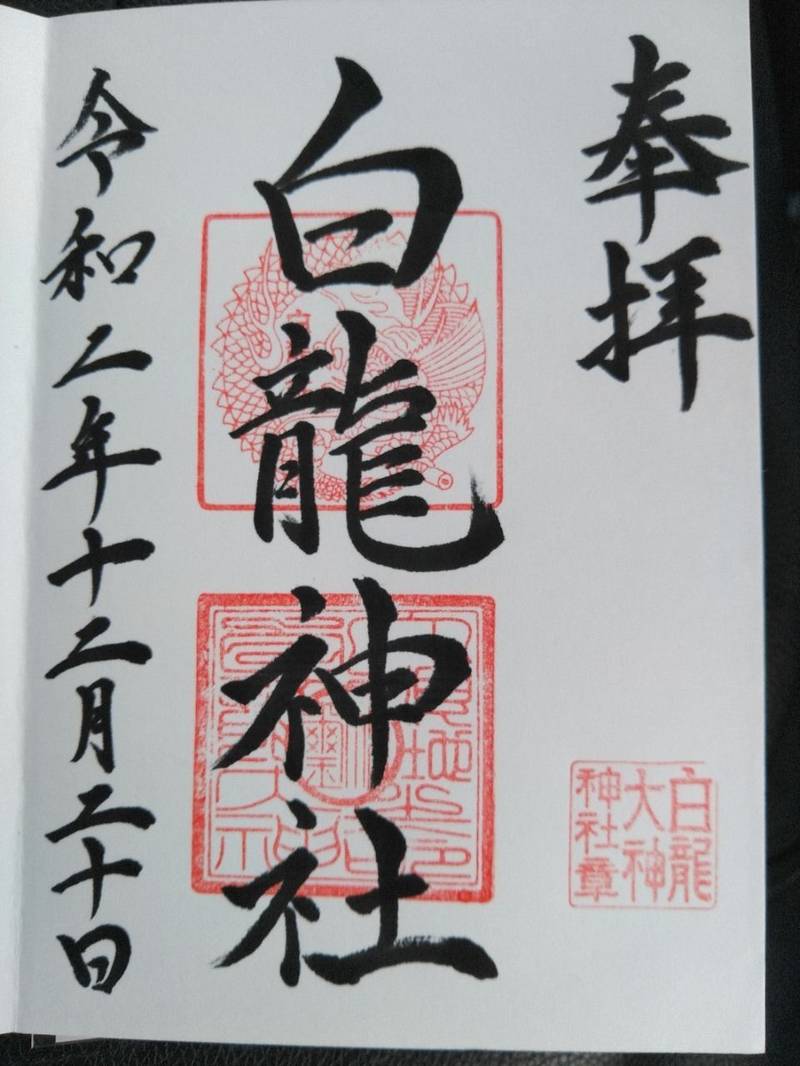 奉拝
白龍神社
令和二年十二月二十日
白龍
大神
神社章